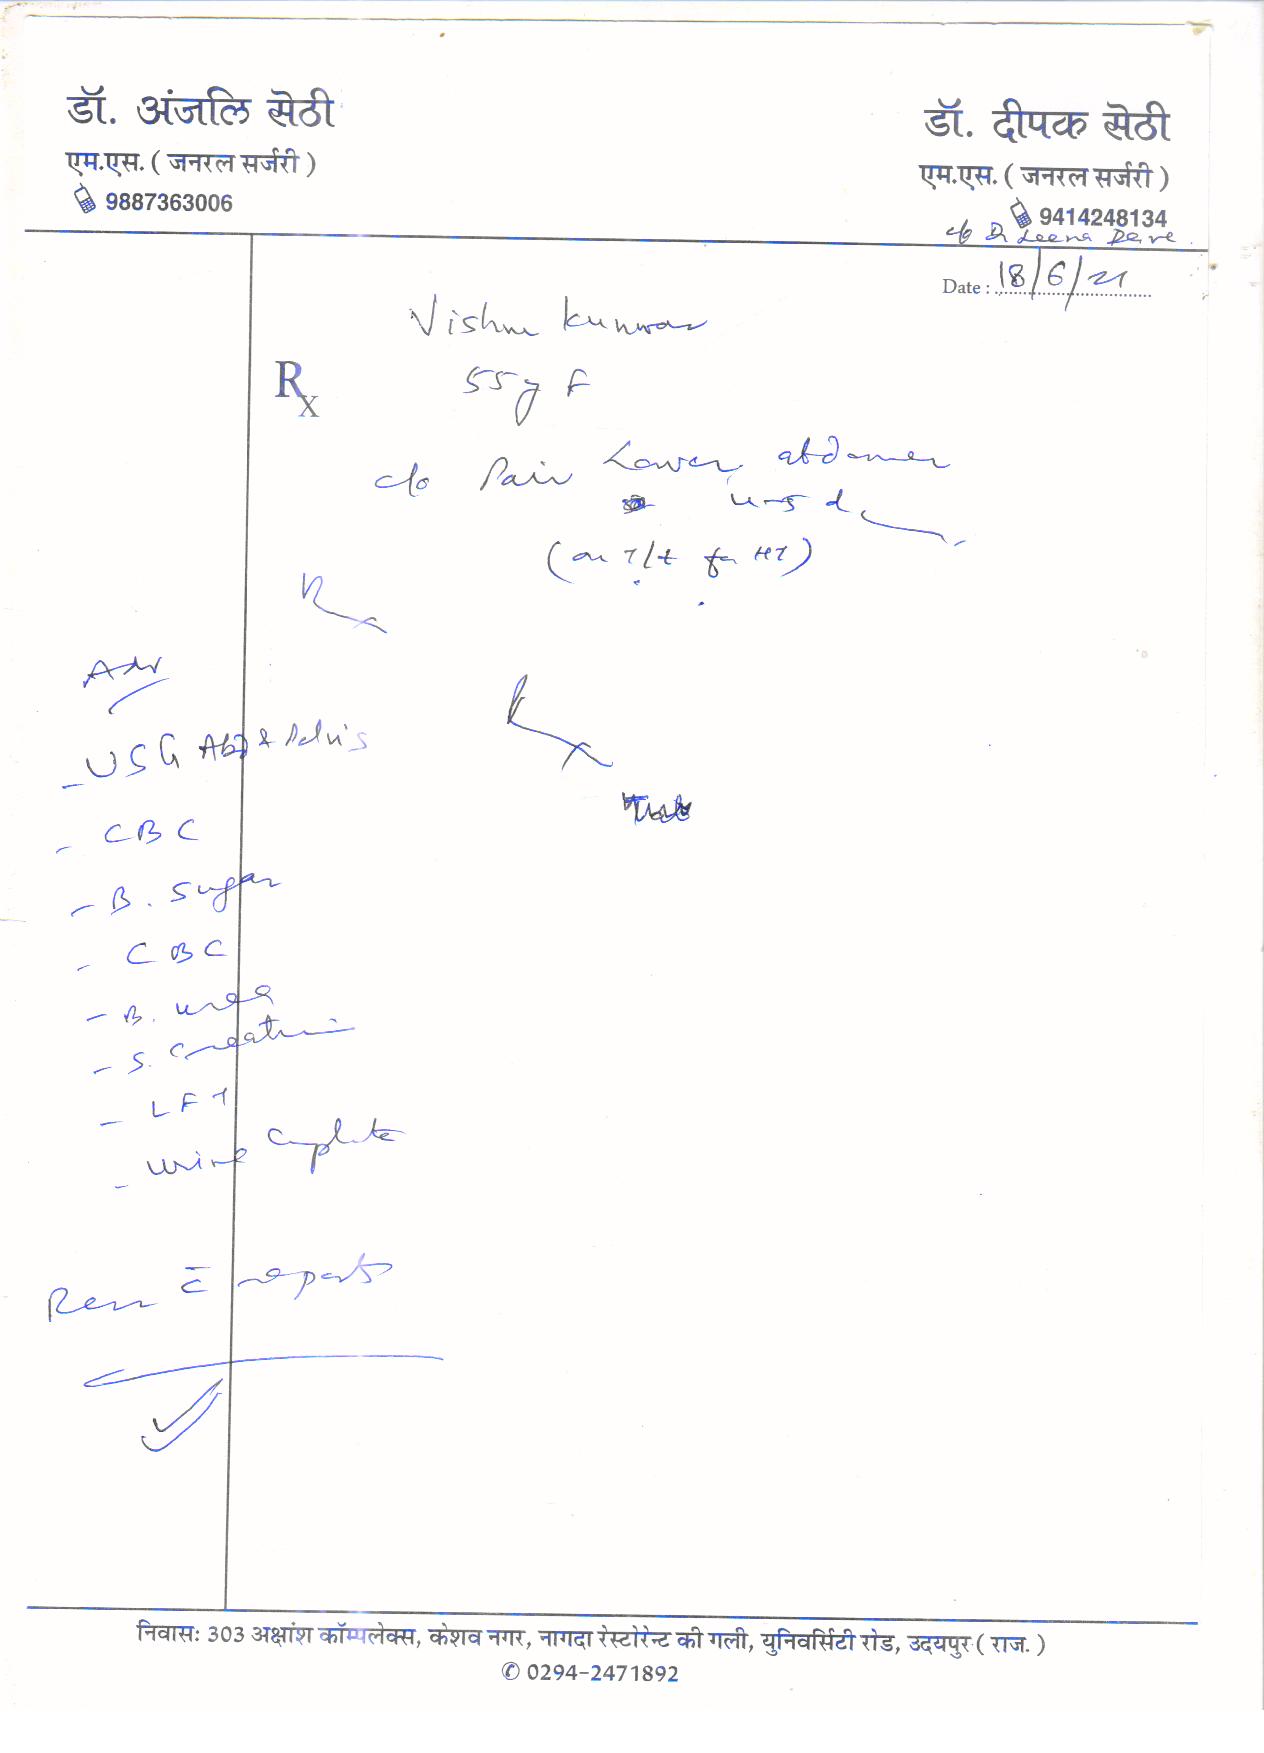 डॉ. अंजलि सेठी
एम.एस. ( जनरल सर्जरी )
9887363006
डॉ. दीपक सेठी
एम.एस. ( जनरल सर्जरी )
9414248134
c/o Dr Leena Dave
Date : 18/6/21
Vishnu Kunwar
Rx
55 y F
c/o Pain Lower abdomen
4-5 d
(on T/t for HT)
Rx
Adv
Rx
- USG Abd & Pelvis
- CBC
- B. Sugar
- CBC
- B. urea
- S. Creatinin
- LFT
- Urine Complete
Rev c̄ reports
निवास: 303 अक्षांश कॉम्पलेक्स, केशव नगर, नागदा रेस्टोरेन्ट की गली, युनिवर्सिटी रोड, उदयपुर ( राज. )
✆ 0294-2471892